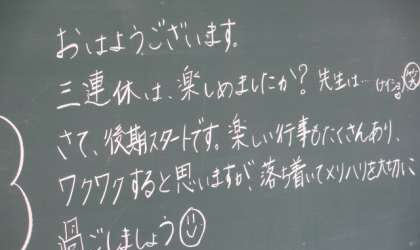 おはようございます。
三連休は、楽しめましたか？先生は…(ナイショ)
さて、後期スタートです。楽しい行事もたくさんあり、
ワクワクすると思いますが、落ち着いてメリハリを大切に、
過ごしましょう